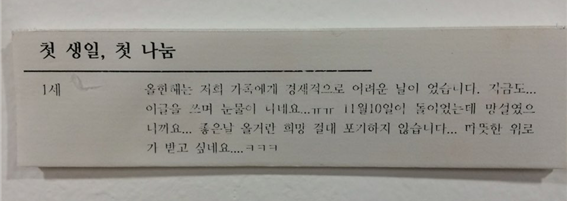 첫 생일, 첫 나눔
1세 올한해는 저희 가족에게 경제적으로 어려운 날이 었습니다. 지금도...
이글을 쓰며 눈물이 나네요...ㅠㅠ 11월10일이 돌이었는데 망설였으
니까요... 좋은날 올거란 희망 절대 포기하지 않습니다... 따뜻한 위로
가 받고 싶네요....ㅋㅋㅋ